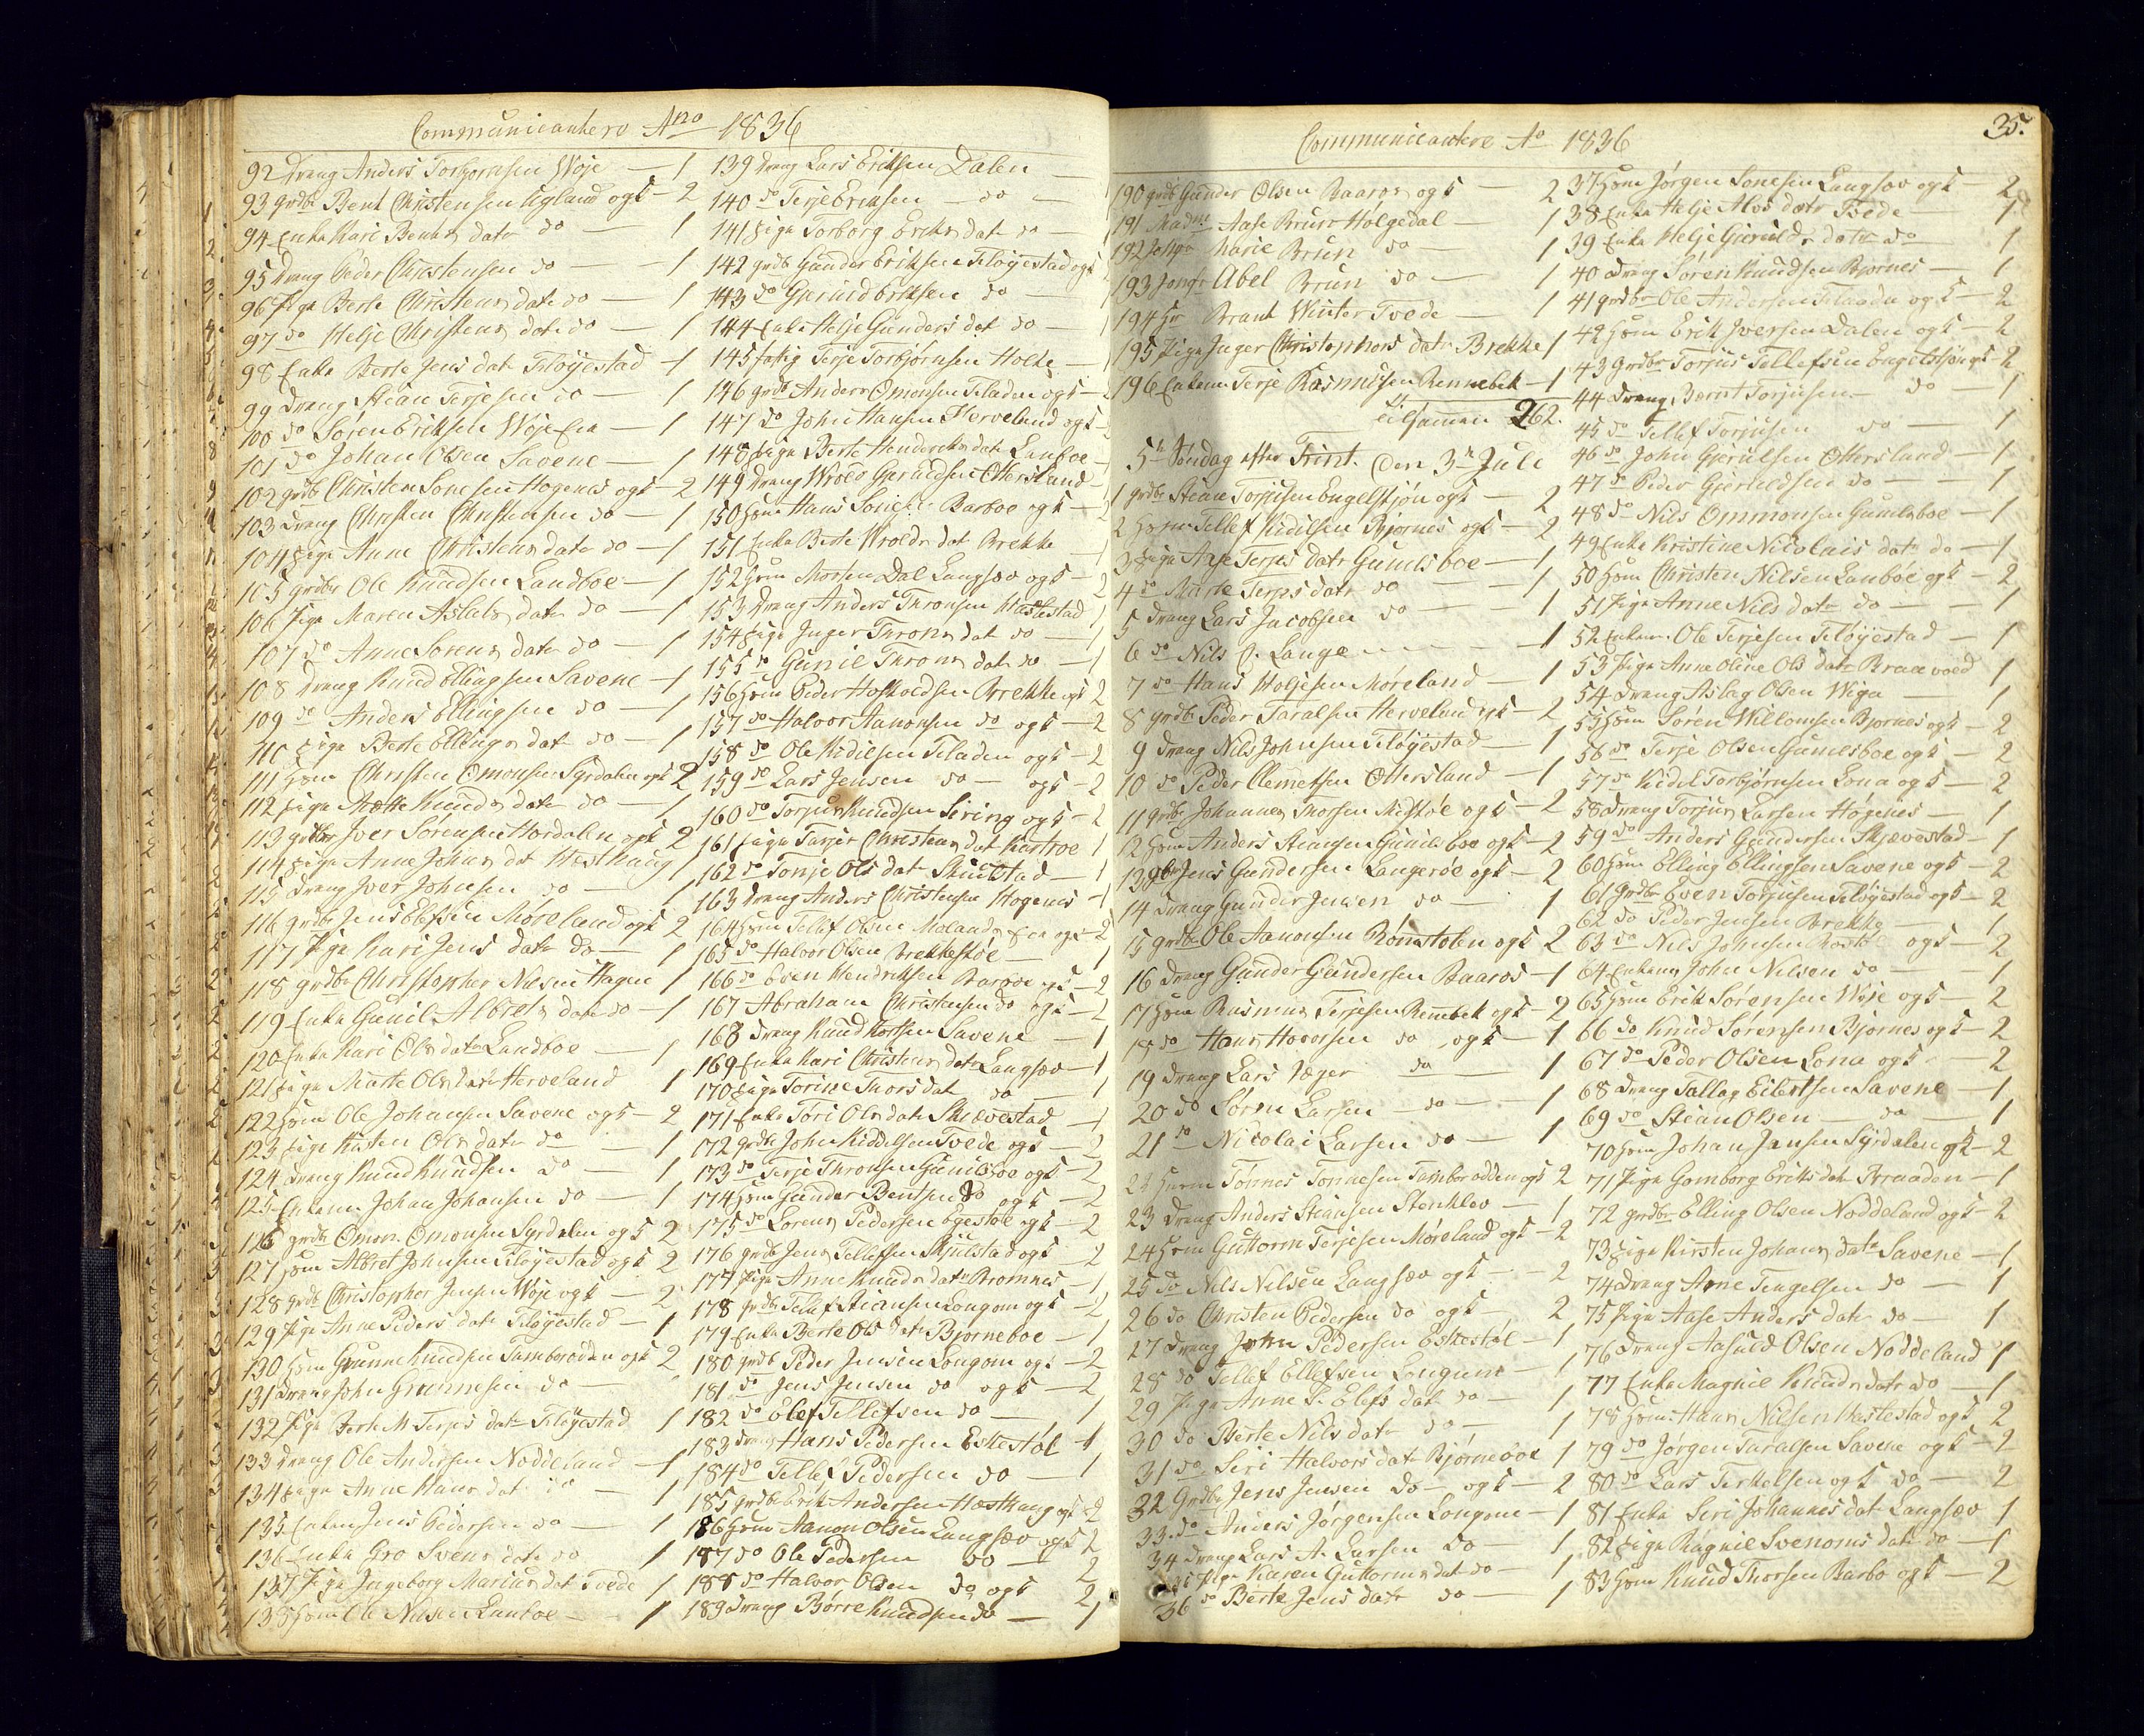 Communicantere Ano 1836
92 Drang Anders Torbjornsen Woje — 1
93 grdbr Bent Christensen Ugland ogk — 2
94 Enka Kari Bents datr do — 1
95 Drang Peder Christensen do — 1
96 Pige Berte Christens datr do — 1
97 do Helje Christens datr do — 1
98 Enka Berte Jens dat Fløyestad — 1
99 Drang Stian Terjesen do — 1
100 do Søren Eriksen Woje
101 do Johan Olsen Savene — 1
102 grdbr Christen Sonesen Hogenes ogk — 2
103 Drang Christen Christensen do — 1
104 Pige Anne Christens datr do — 1
105 grdbr Ole Knudsen Landboe — 1
106 Pige Maren Aslaks datr do — 1
107 do Anne Sorens datr do — 1
108 Drang Knud Ellingsen Savene — 1
109 do Anders Ellingsen do — 1
110 Pige Berte Ellings dat do — 1
111 Hsm Christen Omonsen Syrdalen ogk 2
112 Pige Knuds datr do — 1
113 grdbr Iver Sørensen Hordalen ogk 2
114 Pige Anne Johns dat Hesthaug 1
115 Drang Iver Johnsen do — 1
116 grdbr Jens Elefsen Møreland ogk 2
117 Pige Kari Jens datr do — 1
118 grdbr Christopher Nielsen Hagen 1
119 Enka Gunil Albrets datr do — 1
120 Enka Kari Ols datr Landboe — 1
121 Pige Marte Ols datr Herveland 1
122 Hsm Ole Johansen Savene ogk — 2
123 Pige Kisten Ols datr do — 1
124 Drang Knud Knudsen do — 1
125 Enkem. Johan Johansen do — 1
126 grdbr Omon Omonsen Syrdalen ogk 2
127 Hsm Albret Johnsen Fløyestad ogk 2
128 grdbr Christopher Jensen Woje ogk — 2
129 Pige Anne Peders datr Fløyestad — 1
130 Hsm Grunne Knudsen Tamborodden ogk 2
131 Drang John Grunnesen do —
132 Pige Berte M Terjes datr Fløyestad 1
133 Drang Ole Andersen Noddeland — 1
134 Pige Anne Hans dat do — 1
135 Enkem Jens Pedersen do — 1
136 Enka Gro Svens datr do 1
137 Pige Ingeborg Marius dat Tvede 1
138 Hsm Ole Nilsen Lanboe — 1
139 Drang Lars Eriksen Dalen —
140 do Terje Eriksen — do —
141 Pige Torborg Eriks dat do —
142 grdb Gunder Eriksen Fløyestad ogk
143 do Gjeruld Eriksen do —
144 Enka Helje Gunders dat do —
145 fattig Terje Torbjørnsen Holte —
146 grdb Anders Omonsen Fladen ogk —
147 do John Hansen Herveland ogk —
148 Pige Berte Hendriks dat Lanboe —
149 Drang Wrold Gjeruldsen Ottersland —
150 Hsm Hans Barboe ogk —
151 Enka Berte Wrolds dat Brekke
152 Hsm Morten Dal Langsæv ogk —
153 Drang Anders Thronsen Hastestad
154 Pige Inger Throns dat do —
155 do Gunil Throns dat do — 1
156 Hsm Peder Hofkoldsen Brekke ogk 2
157 do Halvor Aanonsen do ogk — 2
158 do Ole Kidilsen Fladen ogk — 2
159 do Lars Jensen do — ogk — 2
160 do Torjus Knudsen Siring ogk — 2
161 Pige Tarjer Christens dat 1
162 do Tonje Ols dat — 1
163 Drang Anders Christensen Hogenes — 1
164 Hsm Tellef Olsen
165 do Halvor Olsen Brekkestøe — 1
166 do Even Hendriksen Barboe ogk — 2
167 Abraham Christensen do ogk — 2
168 Drang Knud Torsen Savene — 1
169 Enka Kari Christens datr Langsæv — 1
170 Pige Torine Thors dat do — 1
171 Enka Tori Ols datr Skjævestad — 1
172 grdbr John Kiddelsen Tvede ogk — 2
173 do Terje Thronsen Gunilsboe ogk — 2
174 Hsm Gunder Bentsen do ogk — 2
175 do Lorens Pedersen Egestøl ogk — 2
176 grdb Jens Tellefsen ogk — 2
177 Pige Anne Knuds datr Bromnes — 1
178 grdbr Tellef Stiansen Longom ogk — 2
179 Enka Berte Ols datr Bjorneboe — 1
180 grdb Peder Jensen Longom ogk — 2
181 do Jens Jensen do ogk — 2
182 do Elef Tellefsen do — 1
183 Drang Hans Pedersen Eskestøl — 1
184 do Tellef Pedersen do — 1
185 grdbr Erik Andersen Hesthaug ogk 2
186 Hsm Aanon Olsen Langsæv ogk 2
187 do Ole Pedersen do — 2
188 do Halvor Olsen do ogk 2
189 Drang Børre Knudsen do — 1
35.
Communicantere Ao 1836
190 grdb Gunder Olsen Baaros ogk — 2
191 Madme Aase Bruun Holgedal — 1
192 Jomfr Marie Brun do — 1
193 Jomfr Abel Brun do — 1
194 Hr Brant Winter Tvede — 1
195 Pige Inger Christophers datr Brekke 1
196 Enkem Terje Rasmusen Rennebek — 1
tilsamen 262.
5te Søndag efter Trint. Den 3de Juli
1 grdbr Stian Torjusen Engelskjøn ogk — 2
2 Hsm Tellef Kidilsen Bjornes ogk — 2
3 Pige Aase Terjes datr Gunilsboe — 1
4 do Marte Terjes datr do — 1
5 Drang Lars Jacobsen do — 1
6 do Nils C. Lange — 1
7 do Hans Holjesen Møreland — 1
8 grdbr Peder Taralsen Herveland ogk — 2
9 Drang Nils Johnsen Fløyestad — 1
10 do Peder Clemetsen Ottersland — 1
11 grdbr Johannes Thorsen ogk — 2
12 Hsm Anders Stiansen Gunilsboe ogk — 2
13 gb Jens Gundersen Langerøe ogk — 2
14 Drang Gunder Jensen do — 1
15 grdbr Ole Aanonsen Rømstølen ogk 2
16 Drang Gunder Gundersen Baaros — 1
17 Hsm Rasmus Terjesen Rennebek ogk — 2
18 do Hans Hovorsen do ogk — 1
19 Drang Lars Jæger do — 1
20 do Søren Larsen — do — 1
21 do Nicolai Larsen do — 1
22 Hsm Tønnes Tonnesen Tamborodden ogk 2
23 Drang Anders Stiansen Stenklev — 1
24 Hsm Guttorm Terjesen Møreland ogk — 2
25 do Nils Nilsen Langsæv ogk — 2
26 do Christen Pedersen do ogk — 2
27 Drang John Pedersen Eskestøl — 1
28 do Tellef Ellefsen Longum — 1
29 Pige Anne Elefs dat do — 1
30 do Berte Nils datr do — 1
31 do Siri Halvors dat Bjørneboe 1
32 Grdbr Jens Jensen do — ogk — 2
33 do Anders Jørgensen Longom — 1
34 Drang Lars A. Larsen do — 1
35 Pige Karen Guttorms dat do — 1
36 do Berte Jens datr do — 1
37 Hsm Jørgen Sonesen Langsæv ogk — 2
38 Enka Helje Alvs datr Tvede — 1
39 Enka Helje Gjerulds datr do — 1
40 Drang Søren Knudsen Bjornes — 1
41 grdbr Ole Andersen Fladen ogk — 2
42 Hsm Erik Iversen Dalen ogk — 2
43 Grdbr Torjus Tellefsen Engelskjøn ogk — 2
44 Drang Bernt Torjusen — do 1
45 do Tellef Torjusen do — 1
46 do John Gjerulsen Ottersland — 1
47 do Peder Gjeruldsen do — 1
48 do Nils Ommonsen Gunilsboe — 1
49 Enka Kristine Nicolais datr do — 1
50 Hsm Christen Nilsen Lanboe ogk — 2
51 Pige Anne Nils datr do — 1
52 Enkem. Ole Terjesen Fløyestad — 1
53 Pige Anne Oline Ols datr Braavoed 1
54 Drang Aslag Olsen Wiga — 1
55 Hsm Søren Willomsen Bjornes ogk — 2
56 do Terje Olsen Gunilsboe ogk 2
57 do Kidel Torbjørnsen Lona ogk — 2
58 Drang Torjus Larsen Høgenes — 1
59 do Anders Gundersen Skjævestad — 1
60 Hsm Elling Ellingsen Savene ogk — 2
61 Grdbr Even Torjusen Fløyestad ogk — 2
62 do Peder Jensen Brekke — 1
63 do Nils Johnsen ogk — 2
64 Enkem John Nilsen do — 1
65 Hsm Erik Sørensen Woje ogk — 2
66 do Knud Sørensen Bjornes ogk — 2
67 do Peder Olsen Lona ogk — 2
68 Drang Tallag Eilertsen Savene — 1
69 do Stian Olsen — do — 1
70 Hsm Johan Jansen Syrdalen ogk — 2
71 Pige Gomborg Eriks dat Braaden — 1
72 grdbr Elling Olsen Noddeland ogk — 2
73 Pige Kirsten Johans datr Savene — 1
74 Drang Arne Tengelsen do — 1
75 Pige Aase Anders datr do — 1
76 Drang Aasuld Olsen Noddeland 1
77 Enka Magnil Knuds datr do — 1
78 Hsm Hans Nilsen Hastestad ogk 2
79 do Jørgen Taralsen Savene ogk — 2
80 do Lars Terkelsen ogk do — 2
81 Enka Siri Johannes dat Langsæv 1
82 Pige Ragnil Svenoms datr do — 1
83 Hsm Knud Thorsen Barbo ogk — 2